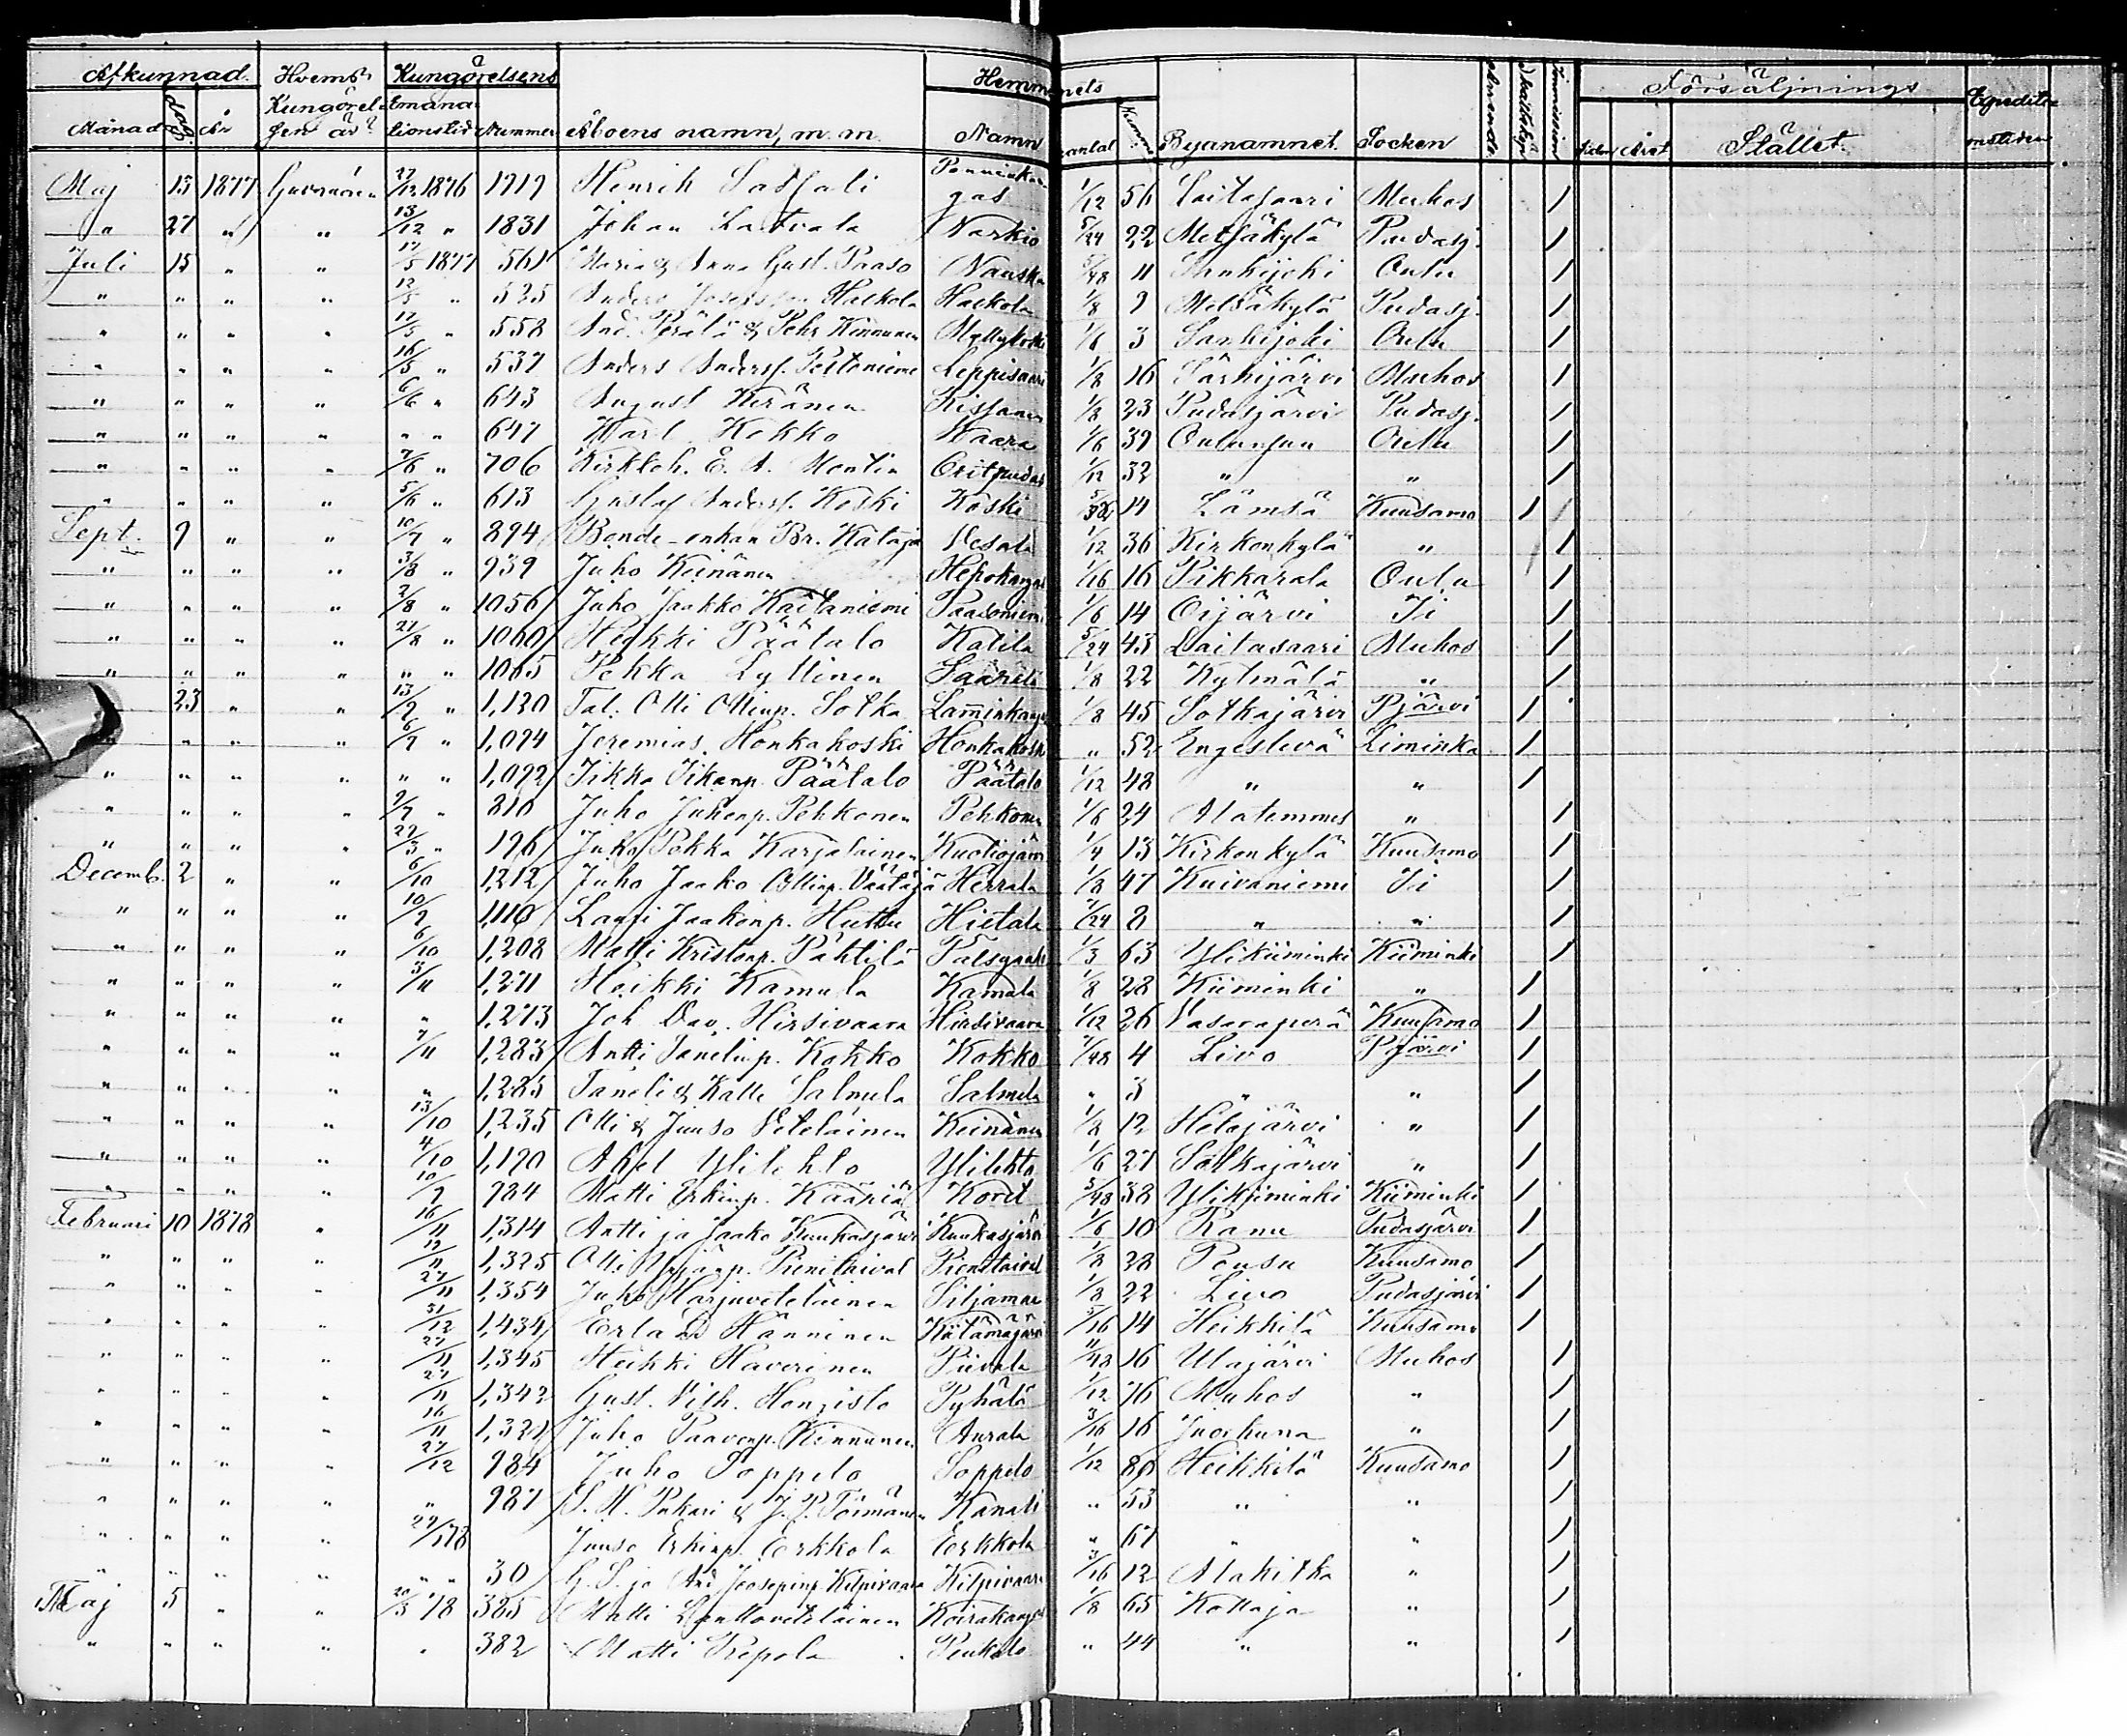 Afkunnad Hvems Kungörelsens Hemmanets Försäljnings Expeditions
Månad dag År Kungörelsen är Emanationstid Nummer Åboens namn, m. m. Namn antal Byanamnet Socken Året Stället
Maj 13 1877 27/12 1876 1919 Henrik 1/12 56 Laitasaari Muhos /
" 27 " " 13/12 " 1831 Johan Latvala Narkio 5/24 22 Metsäkylä Pudasj. /
Juli 15 " " 17/5 1877 561 Maria & Anna Gust. Paaso 5/48 11 Sankijoki Oulu /
" " " " 12/5 " 525 Anders Haekola Haekola 1/8 9 Metsäkylä Pudasj. /
" " " " 17/5 " 558 And. Perälä & Pehr Kinnunen Myllykoski 1/6 3 Sankijoki Oulu /
" " " " 16/5 " 537 Anders Anderss. Leppisaari 1/8 16 Särkijärvi Muhos /
" " " " 6/6 " 643 August Keränen 1/8 23 Pudasjärvi Pudasj. /
" " " " " " 647 Karl Kokko Kaara 1/6 39 Oulunsuu Oulu /
" " " " 7/6 " 706 E. A. Montin 1/12 32 " " /
" " " " 5/6 " 613 Gustaf Anderss. Koski Koski 14 Lämsä Kuusamo /
Sept. 9 " " 10/7 " 894 Bonde-enkan Br. Kataja Vesala 1/12 36 Kirkonkylä " /
" " " " 3/8 " 939 Juho Keinänen Hepokangas 1/16 16 Pikkarala Oulu /
" " " " 2/8 " 1056 Juho Jaakko Kaitaniemi Paasoniemi 1/6 14 Oijärvi Ii /
" " " " 21/8 " 1060 Heikki Päätalo Katila 5/24 43 Laitasaari Muhos /
" " " " " " 1065 Pekka Lyttinen Säärelä 1/8 22 Kylmälä " /
23 " " 13/9 " 1,120 Tal. Olli Ollinp. Sotka Lamminkangas 1/8 45 Sotkajärvi Pjärvi /
" " " 6/9 " 1,094 Jeremias Honkakoski Honkakoski " 52 Engeslevä Liminka /
" " " " " " 1,092 Iikka Iikanp. Päätalo Päätalo 1/12 48 " " /
" " " " 2/7 " 810 Juho Juhonp. Pehkonen Pehkonen 1/6 24 Alatemmes " /
" " " " 22/3 " 196 Juho Pekka Karjalainen Kuoliojärvi 1/4 13 Kirkonkylä Kuusamo /
Decemb. 2 " " 6/10 1,212 Juho Jaako Ollinp. Väätäjä Herrala 1/8 47 Kuivaniemi Ii /
" " " " 10/9 1,110 Lassi Jaakonp. Huttu Hietala 7/24 8 " " /
" " " " 6/10 1,208 Matti Kristonp. Pahtila 1/3 63 Ylikiiminki Kiiminki /
" " " " 3/11 1,271 Heikki Kamula Kamula 1/8 28 Kiiminki " /
" " " " " 1,273 Joh Dav. Hirsivaara Hirsivaara 1/12 26 Vasaraperä Kuusamo /
" " " " 7/11 1,283 Antti Tanelinp. Kokko Kokko 7/48 4 Livo Pjärvi /
" " " " " 1,285 Taneli & Kalle Salmela Salmela " 3 " " /
" " " " 13/10 1,235 Olli & Juuso Veteläinen Keinänen 1/8 12 Hetejärvi " /
" " " " 4/10 1,190 Abel Ylilehto Ylilehto 1/6 27 Sotkajärvi " /
" " " " 10/9 984 Matti Erkinp. Kääriä 5/48 38 Ylikiiminki Kiiminki /
Februari 10 1878 " 16/11 1,314 Antti ja Jaako Kuukasjärvi Kuukasjärvi 1/6 10 Ranu Pudasjärvi /
" " " " 19/11 1,325 Olli Pienitaival Pienitaival 1/8 28 Pousu Kuusamo /
" " " " 27/11 1,354 Juho Harjuveteläinen Siljamaa 1/8 22 Livo Pudasjärvi /
" " " " 31/12 1,434 Erland Hänninen 5/16 14 Heikkilä Kuusamo /
" " " " 27/11 1,345 Heikki Haverinen Piirala 11/48 16 Utajärvi Muhos /
" " " " 27/11 1,342 Gust. Vilh. Hongisto Pyhälä 1/12 76 Muhos " /
" " " " 16/11 1,321 Juho Paavonp. Kinnunen Aurala 3/16 16 Juorkuna " /
" " " " 27/12 984 Juho Soppelo Soppelo 1/12 80 Heikkilä Kuusamo /
" " " " " 987 S. H. Pukari & J. P. Törmänen Kanala " 53 " " /
" " " " 29/1 78 Juuso Erkinp. Erkkola Erkkola " 67 " " /
" " " " " " 30 G. S. ja And Joosepinp. Kilpivaara Kilpivaara 3/16 12 Alakitka " /
Maj 5 " " 20/3 78 385 Matti Lanttoveteläinen Koirakangas 1/8 65 Kallaja " /
" " " " " 382 Matti Repola " 44 " " /